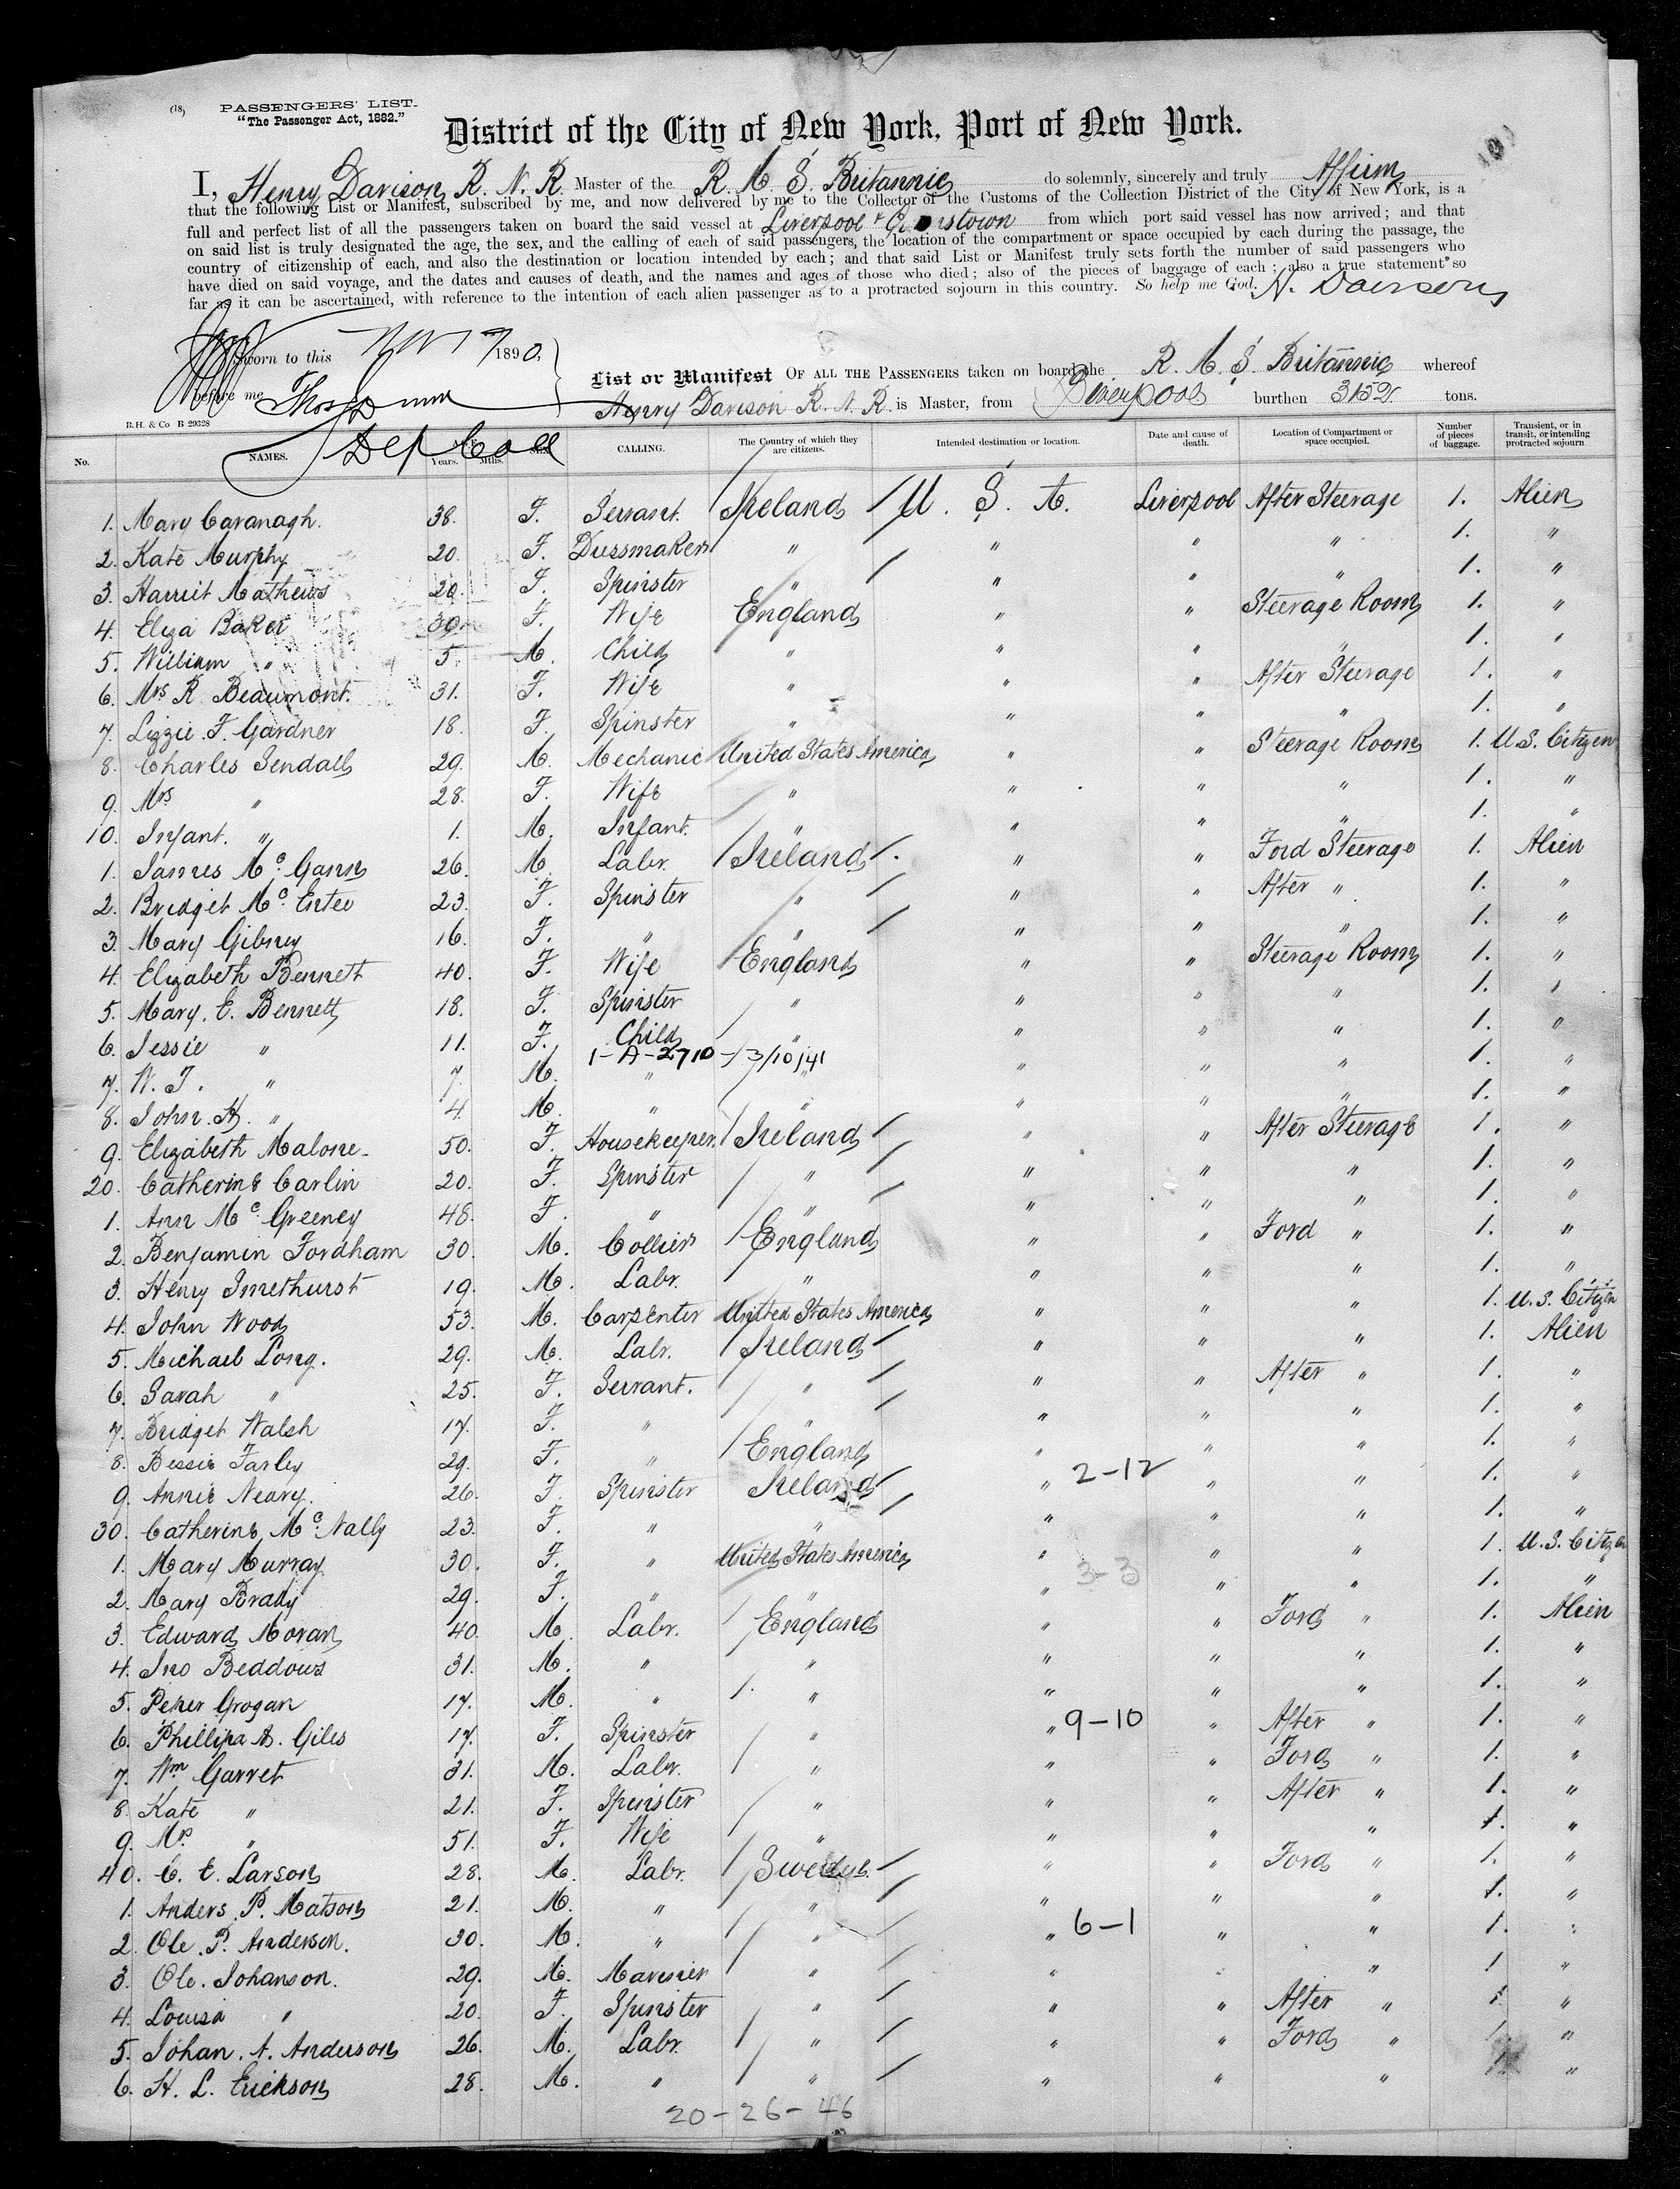 (18)
PASSENGERS' LIST.
"The Passenger Act, 1882."
District of the City of New York, Port of New York.
I, Henry Davison R. N. R. Master of the R. M. S. Britannic do solemnly, sincerely and truly Affirm
that the following List or Manifest, subscribed by me, and now delivered by me to the Collector of the Customs of the Collection District of the City of New York, is a
full and perfect list of all the passengers taken on board the said vessel at Liverpool & from which port said vessel has now arrived; and that
on said list is truly designated the age, the sex, and the calling of each of said passengers, the location of the compartment or space occupied by each during the passage, the
country of citizenship of each, and also the destination or location intended by each; and that said List or Manifest truly sets forth the number of said passengers who
have died on said voyage, and the dates and causes of death, and the names and ages of those who died; also of the pieces of baggage of each; also a true statement so
far as it can be ascertained, with reference to the intention of each alien passenger as to a protracted sojourn in this country. So help me God. H. Davison
Sworn to this 1890,
before me
List or Manifest OF ALL THE PASSENGERS taken on board the R. M. S. Britannic whereof
Henry Davison R. N. R. is Master, from Liverpool burthen 3152 tons.
B.H. & Co B 29328
Dep Coll
No. NAMES. Years. Mths. SEX. CALLING. The Country of which they are citizens. Intended destination or location. Date and cause of death. Location of Compartment or space occupied. Number of pieces of baggage. Transient, or in transit, or intending protracted sojourn
1. Mary Cavanagh. 38. F. Servant. Ireland U. S. A. Liverpool After Steerage 1. Alien
2. Kate Murphy 20. F. Dressmaker " " " " 1. "
3. Harriet Mathews 20. F. Spinster " " " " 1. "
4. Eliza Baker 30. F. Wife England " " Steerage Room 1. "
5. William " 5. M. Child " " " " 1. "
6. Mrs R Beaumont. 31. F. Wife " " " After Steerage 1. "
7. Lizzie. F. Gardner 18. F. Spinster " " " " 1. "
8. Charles Sendall 29. M. Mechanic United States America " " Steerage Room 1. U.S. Citizen
9. Mrs " 28. F. Wife " " " " 1. "
10. Infant. " 1. M. Infant. " " " " 1. "
1. James Mc Gann 26. M. Labr. Ireland " " Ford Steerage 1. Alien
2. Bridget Mc Entee 23. F. Spinster " " " After " 1. "
3. Mary Gibney 16. F. " " " " " 1. "
4. Elizabeth Bennett 40. F. Wife England " " Steerage Room 1. "
5. Mary. E. Bennett 18. F. Spinster " " " " 1. "
6. Jessie " 11. F. Child " " " " 1. "
1-A-2710-3/10/41
7. W. J. " 7. M. " " " " " 1. "
8. John. H. " 4. M. " " " " " 1. "
9. Elizabeth Malone 50. F. Housekeeper. Ireland " " After Steerage 1. "
20. Catherine Carlin 20. F. Spinster " " " " 1. "
1. Ann Mc Greeney 48. F. " " " " " 1. "
2. Benjamin Fordham 30. M. Collier England " " Ford " 1. "
3. Henry Smethurst 19. M. Labr. " " " " 1. "
4. John Wood 53. M. Carpenter United States America " " " 1. U.S. Citizen
5. Michael Long. 29. M. Labr. Ireland " " " 1. Alien
6. Sarah " 25. F. Servant. " " " After " 1. "
7. Bridget Walsh 17. F. " " " " " 1. "
8. Bessie Farley 29. F. " England " " " 1. "
9. Annie Neary. 26. F. Spinster Ireland " 2-12 " " 1. "
30. Catherine Mc Nally 23. F. " " " " " 1. "
1. Mary Murray 30. F. " United States America " " " 1. U.S. Citizen
2. Mary Brady 29. F. " " " 3-3 " " 1. "
3. Edward Moran 40. M. Labr. England " " Ford " 1. Alien
4. Jno Beddows 31. M. " " " " " 1. "
5. Peter Grogan 17. M. " " " " " 1. "
6. Phillipa A. Giles 17. F. Spinster " " 9-10 " After " 1. "
7. Wm Garret 31. M. Labr. " " " Ford " 1. "
8. Kate " 21. F. Spinster " " " After " 1. "
9. Mrs " 51. F. Wife " " " " 1. "
40. C. E. Larson 28. M. Labr. Sweden " " Ford " 1. "
1. Anders. P. Matson 21. M. " " " " " 1. "
2. Ole. P. Anderson. 30. M. " " " 6-1 " " 1. "
3. Ole. Johanson. 29. M. Mariner " " " " 1 "
4. Louisa " 20. F. Spinster " " " After " 1. "
5. Johan. A. Anderson 26. M. Labr. " " " Ford " 1. "
6. H. L. Erickson 28. M. " " " " " 1. "
20-26-46